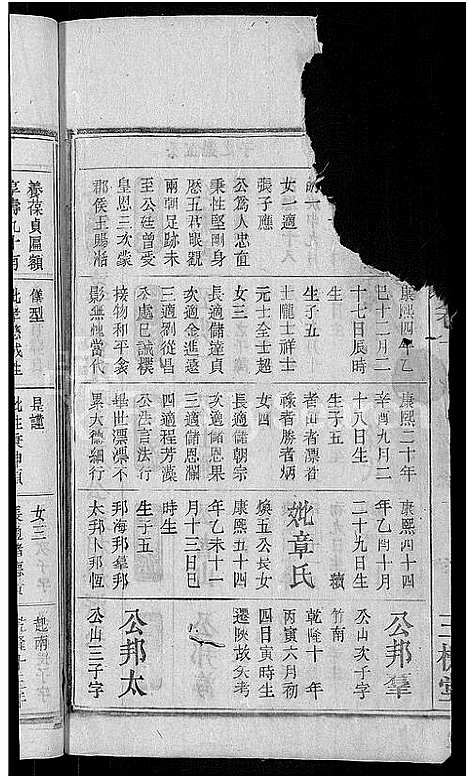 三槐堂
女一適
張子應
公為人忠直
秉性堅剛身
歷五君眼觀
兩朝足跡未
至公廷曾受
皇恩三次蒙
郡侯王賜冶
康熙四年乙
巳十二月二
十七日辰時
生
生子五
士龍士祥士
元士全士超
女三
長適儲達貞
次適金進遠
三適劉從昌
公處已誠樸
接物和平衾
影無愧當代
康熙二十年
辛酉九月二
十八日生
生子五
者山者漂者
祿者勝者炳
女四
長適儲朝宗
次適儲恩果
三適儲恩瀾
四適程芳藻
公法言法行
舉世漂漂不
累大德細行
康熙四十四
年乙酉十月
二十九日生
續
妣章氏
煥五公長女
康熙五十四
年乙未十一
月十三日巳
時生
生子五
邦海邦羣
太邦卜邦恆
公邦羣
公山次子字
竹南
乾隆十年
丙寅六月初
四日寅時生
遷陝故失考
公邦太
公山三子字
養葆貞匾額
享壽九十有
儀型
是謹
女三